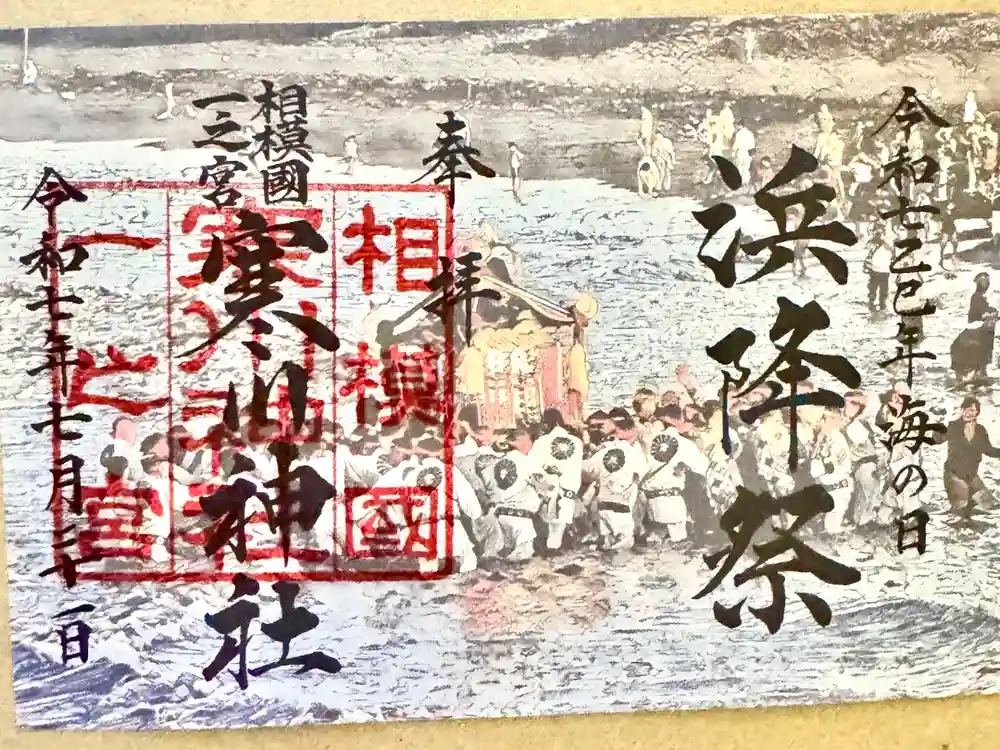 令和七乙巳年 海の日
浜降祭
奉拝
相模國
一之宮
寒川神社
令和七年七月二十一日
相模國
寒川神社
一之宮